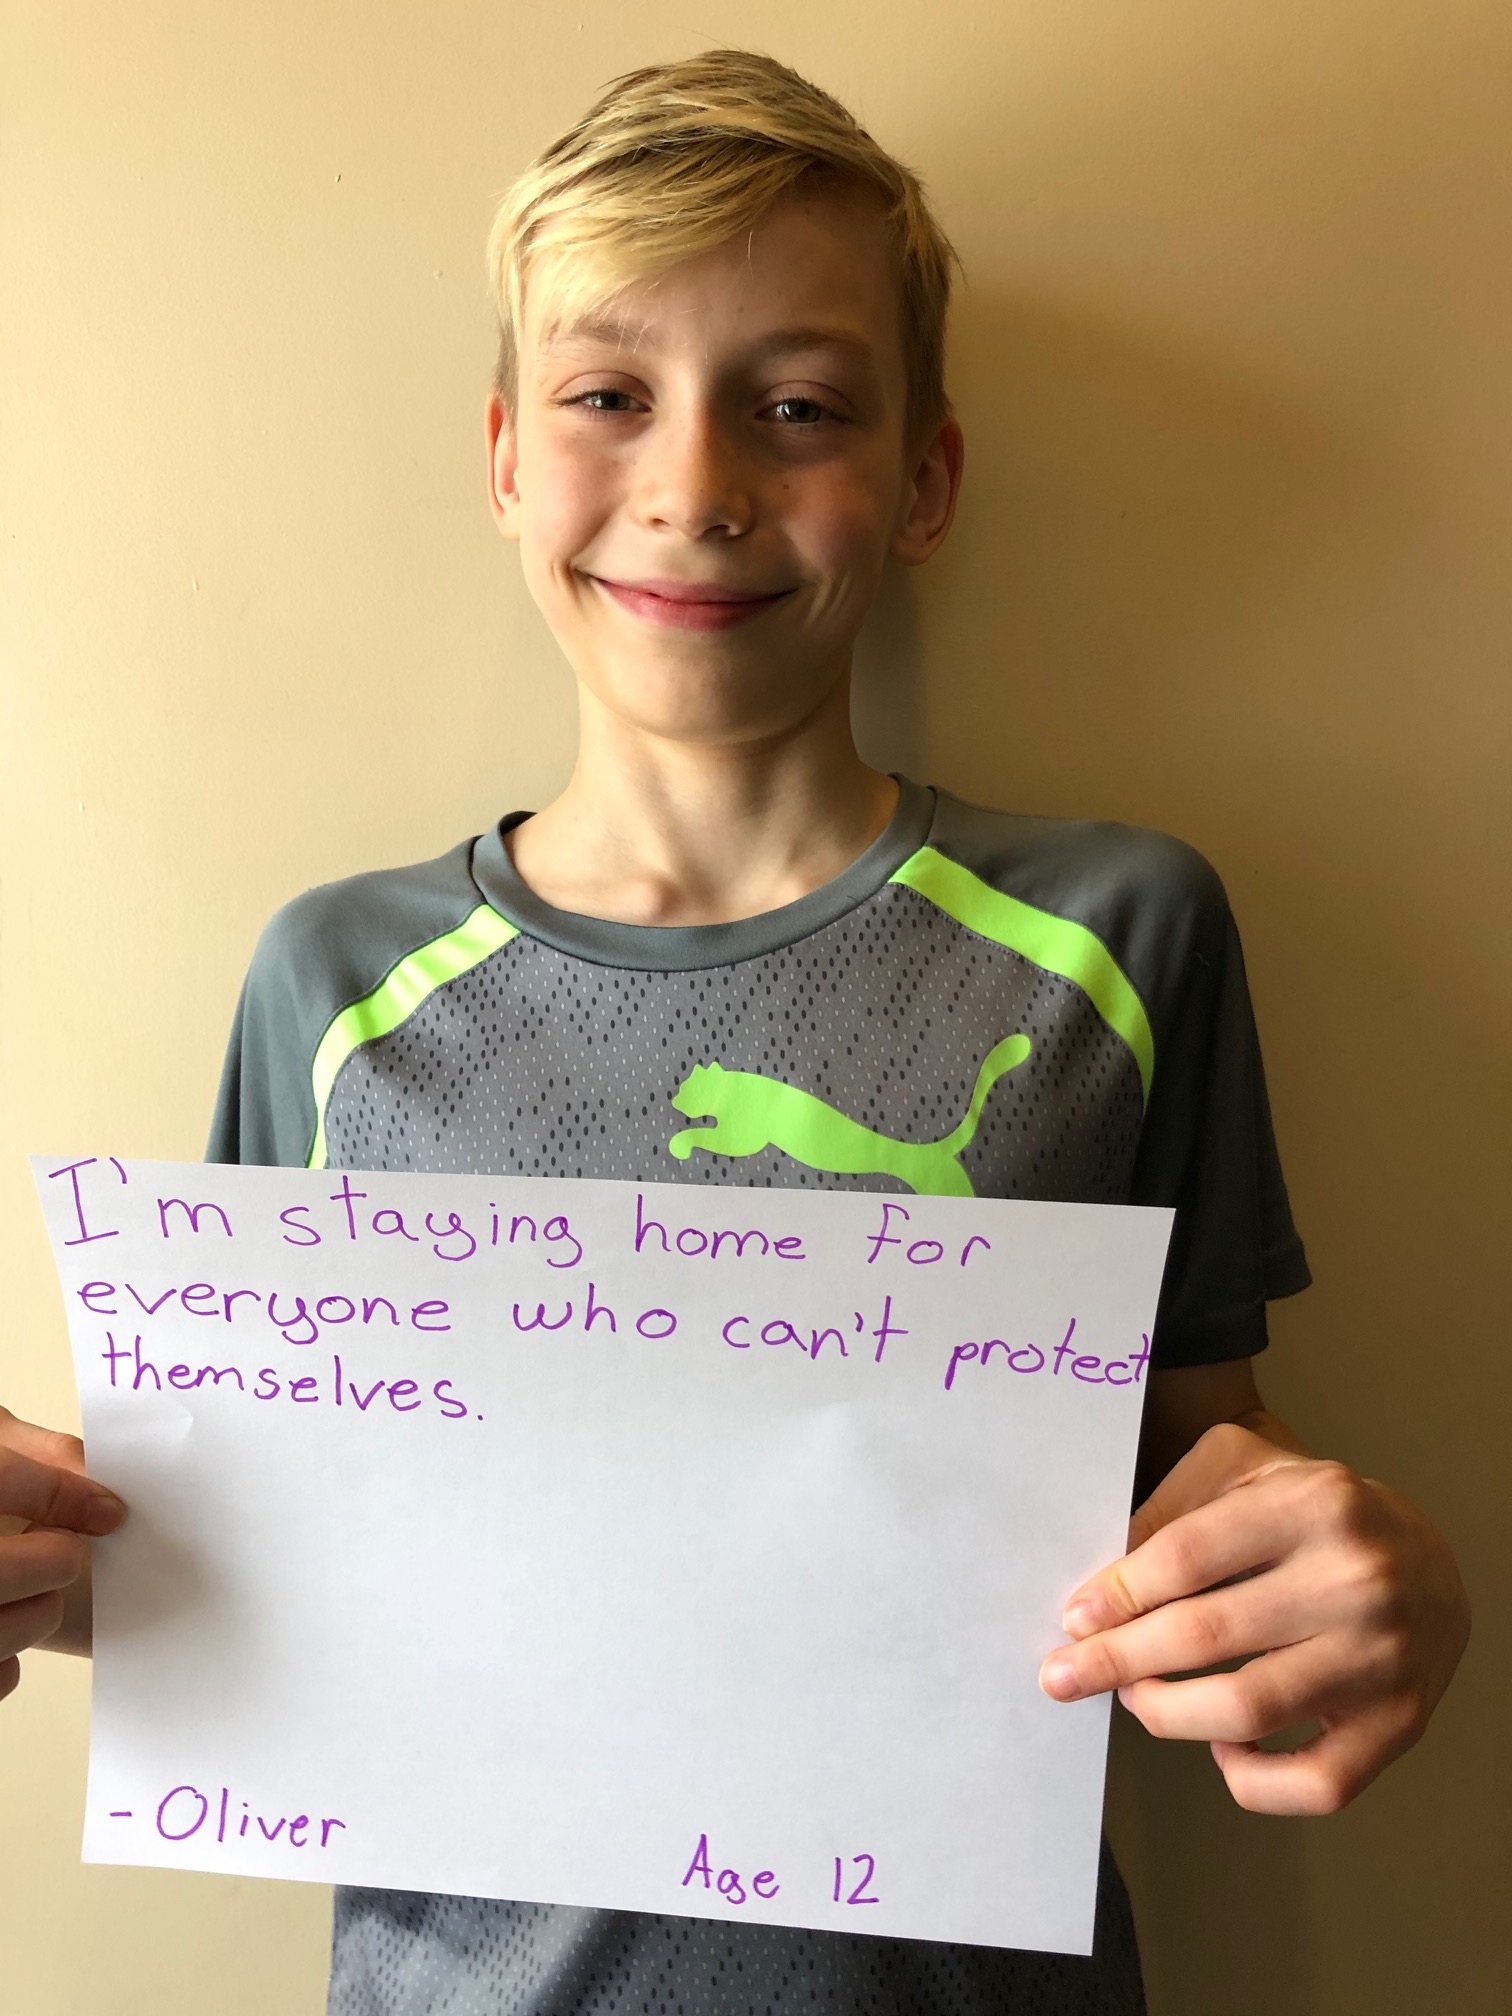 I'm staying home for
everyone who can't protect
themselves.
- Oliver
Age 12